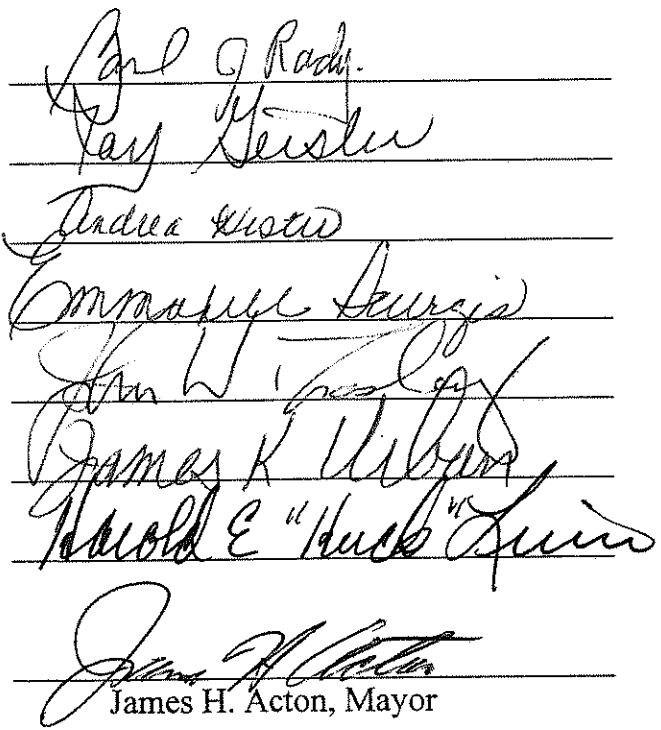 Paul J Rady.
Ray Geisler
Andrea
Emmanuel Sturgis
John W
James K Urban
Harold E "Huck" Lewis
James H Acton
James H. Acton, Mayor